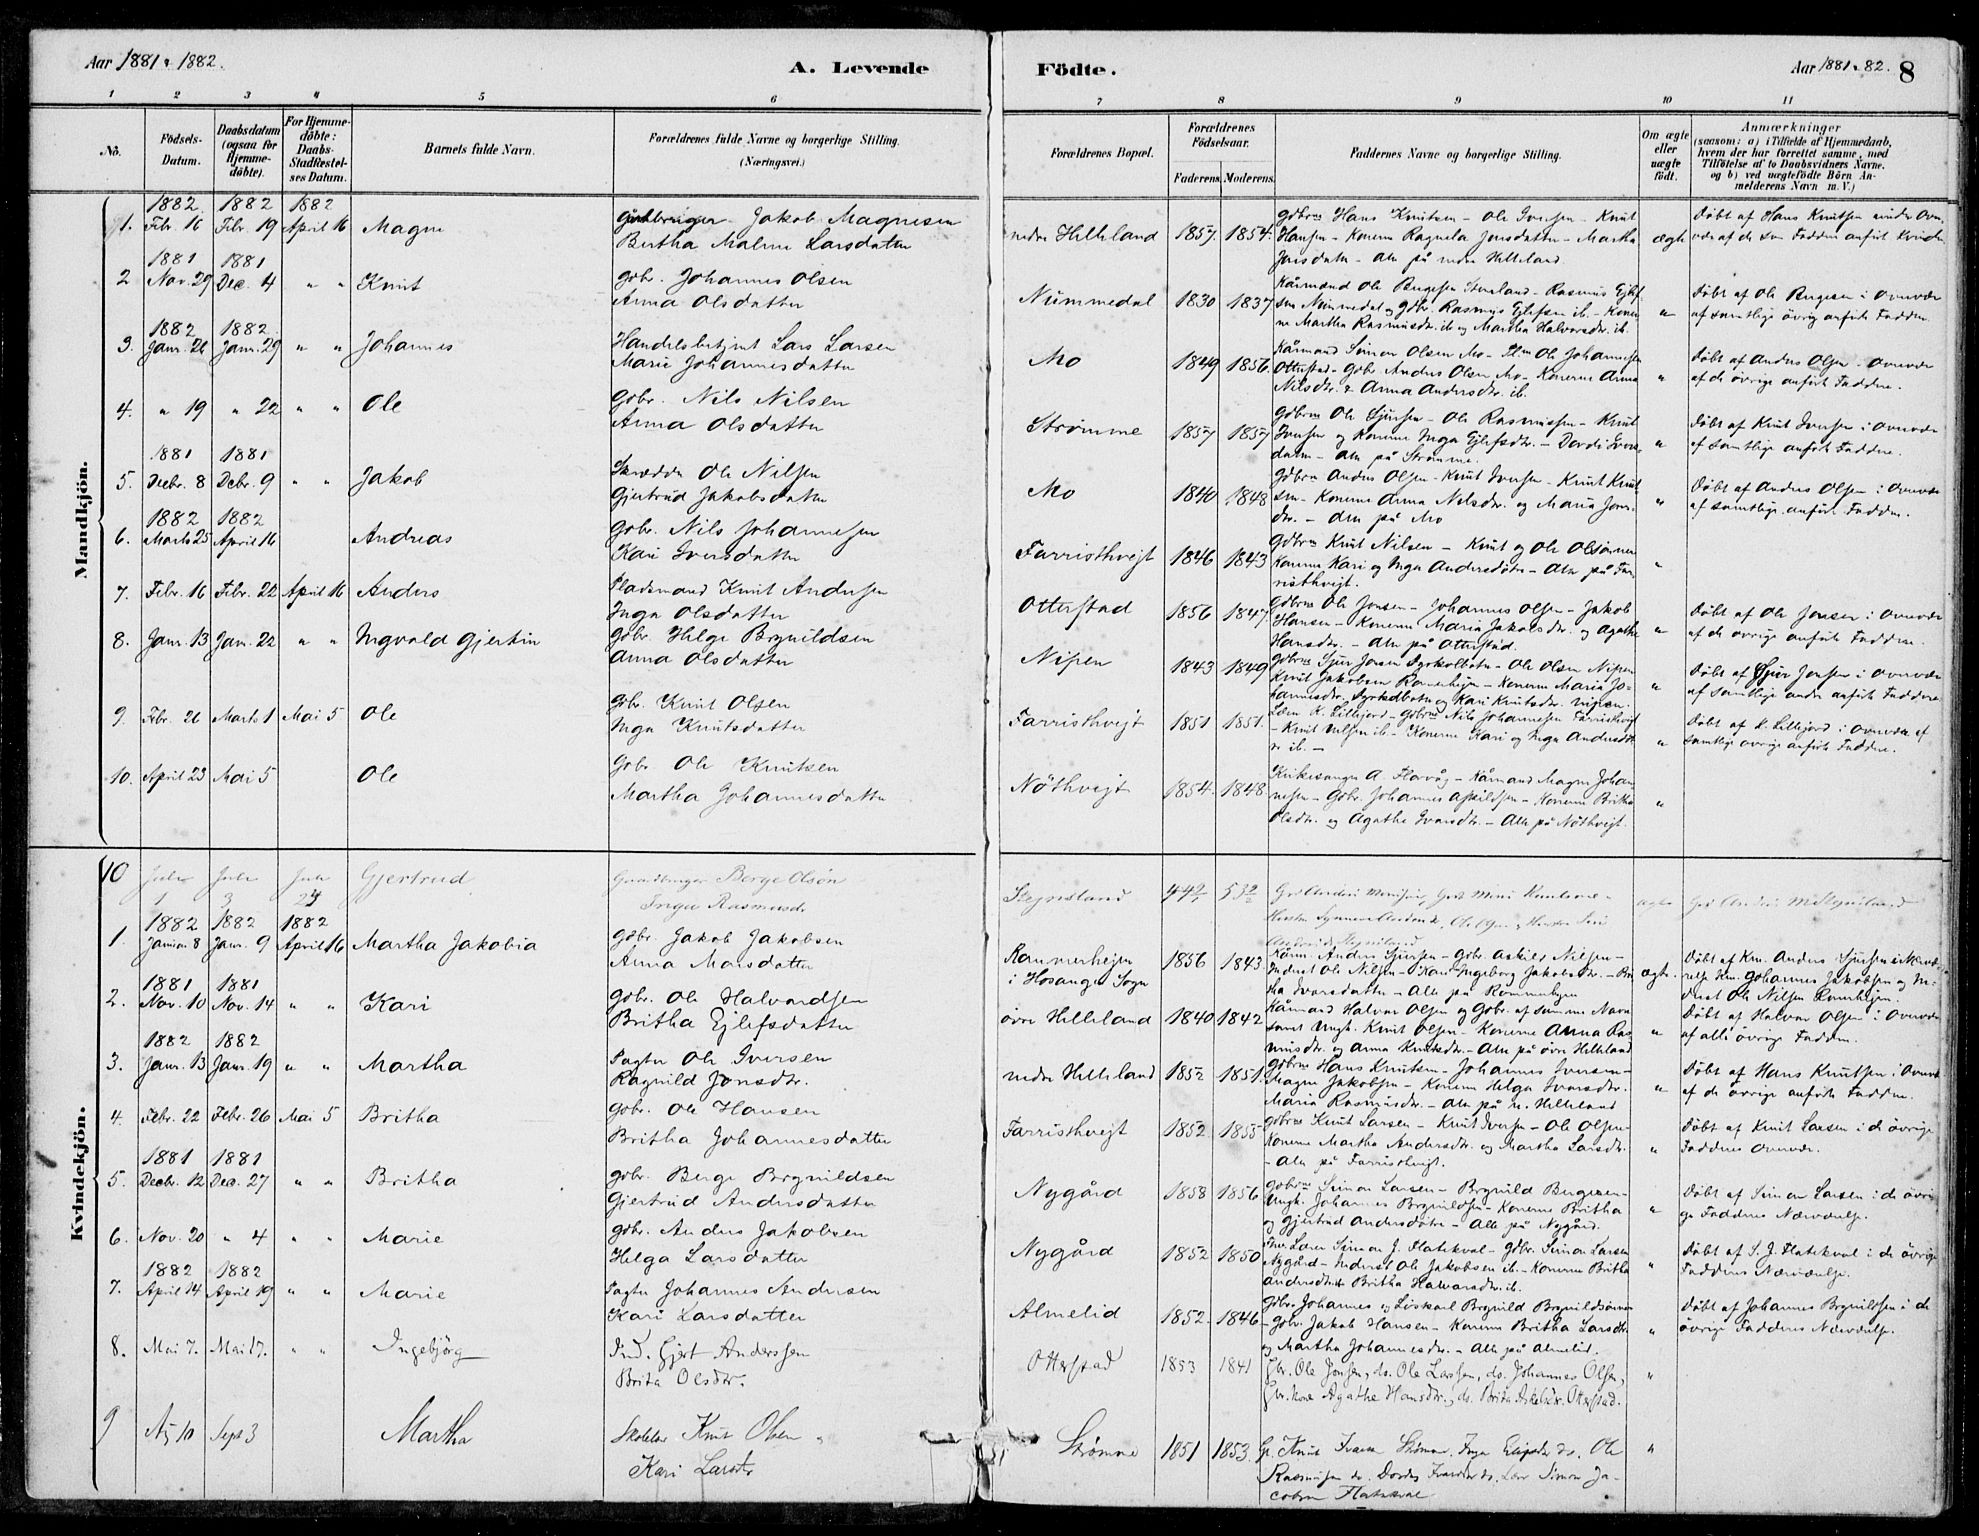 Aar 1881 & 1882.
A. Levende
Födte.
Aar 1881 & 82.
8
1 2 3 4 5 6 7 8 9 10 11
No.
Födsels-Datum.
Daabsdatum (ogsaa for Hjemmedöbte).
For Hjemmedöbte: Daabs-Stadfæstelses Datum.
Barnets fulde Navn.
Forældrenes fulde Navne og borgerlige Stilling.
(Næringsvei.)
Forældrenes Bopæl.
Forældrenes Födselsaar.
Faderens. Moderens.
Faddernes Navne og borgerlige Stilling.
Om ægte eller uægte födt.
Anmærkninger
(saasom: a) i Tilfælde af Hjemmedaab, hvem der har forrettet samme, med Tilföielse af to Daabsvidners Navne. og b) ved uægtefödte Börn Anmelderens Navn m. V.)
Mandkjön.
1882 1882 1882
1. Febr. 16 Febr. 19 April 16 Magne
Gårdbruger Jakob Magnesen
Bertha Malene Larsdatter
nedre Helleland 1857. 1854.
Gdbrne Hans Knutsen - Ole Iversen - Knut
Hansen - Konerne Ragnela Jonsdatter - Martha
Jonsdatter - Alle på nedre Helleland.
ægte
Döbt af Hans Knutsen
1881 1881
2 Nov. 29 Dec. 4 " " Knut
Gbr. Johannes Olsen
Anna Olsdatter
Nummedal 1830 1837
"
Döbt af Ole Bergesen i Overvær
af samtlige övrig anförte Faddere.
1882 1882
3. Janr. 26 Janr. 29 " " Johannes
Handelsbetjent Lars Larsen
Marie Johannesdatter
Mo 1849 1856.
Kårmand Simon Olsen Mo - Plm Ole Johannesen
Otterstad - Gdbr Anders Olsen Mo - Konerne Anna
Nilsdtr. & Anna Andersdtr. ib.
"
Döbt af Anders Olsen i Overvær
af de övrige anförte Faddere.
4. " 19 " 22 " " Ole
Gbr. Nils Nilsen
Anna Olsdatter
Strømme 1857 1857
Gdbrne Ole Sjursen - Ole Rasmussen - Knut
Iversen og Konerne Inga Ejlefsdtr. - Dordi Ivers-
datter - Alle på Strømme.
"
Döbt af Knut Iversen i Overvær
af samtlige anförte Faddere.
1881 1881
5. Decbr. 8 Debr. 9 " " Jakob
Skrædder Ole Nilsen
Gjertrud Jakobsdatter
Mo 1840 1848
Gdbrne Anders Olsen - Knut Iversen - Knut Knut-
sen - Konerne Anna Nilsdtr. og Maria Jons-
dtr. - Alle på Mo
"
Döbt af Anders Olsen i Overvær
af samtlige anförte Faddere.
1882 1882
6. Marts 25 April 16 Andreas
Gbr. Nils Johannesen
Kari Iversdatter
Farristhvejt 1846 1843
Gdbrne Knut Nilsen - Knut og Ole Olsönner
Konerne Kari og Inga Andersdötre - Alle på Far-
risthvejt.
"
7. Febr. 16 Febr. 22 April 16 Anders
Pladsmand Knut Andersen
Inga Olsdatter
Otterstad 1856 1847.
Gdbrne Ole Jonsen - Johannes Olsen - Jakob
Hansen - Konerne Maria Jakobsdtr. og Agathe
Hansdtr. - Alle på Otterstad.
"
Döbt af Ole Jonsen i Overvær
af de övrige anförte Faddere.
8. Janr. 13 Jan. 22 " " Ingvald Gjertin
Gbr. Helge Brynildsen
Anna Olsdatter
Nipen 1843 1849
"
Döbt af Sjur Jonsen i Overvær
af samtlige andre anförte Faddere
9. Febr. 26 Marts 1 Mai 5 Ole
Gbr. Knut Olsen
Inga Knutsdatter
Farristhvejt 1851 1851.
Lærer K. Lillejord - Gdbrne Nils Johannesen Farristhvejt
- Knut Nilsen ib. - Konerne Kari og Inga Andersdöt-
re ib. -
"
Döbt af K. Lillejord i Overvær af
samtlige övrige anförte Faddere.
10. April 23 Mai 5 Ole
Gbr. Ole Knutsen
Martha Johannesdatter
Nöthvejt 1854. 1848.
Kirkesanger A. Flavåg - Kårmand Magne Johan-
nesen - Gdbr. Johannes Askildsen - Konerne Britha
Olsdtr. og Agatha Ivarsdtr. - Alle på Nöthvejt.
"
Kvindekjön.
10 Juli 1 Juli 3 Juli 23 Gjertrud
Gaardbruger Berge Olsön
Inga Rasmusd.
Stejnsland
ægte
1882 1882 1882
1. Januar 8 Janr. 9 April 16 Martha Jakobia
Gdbr. Jakob Jakobsen
Anna Monsdatter
Rammerhejen
i Hosanger Sogn
1856 1843
Kårm. Anders Sjursen - Gdbr. Askild Nilsen -
Inderst Ole Nilsen - Kone Ingeborg Jakobsdtr. - Bri-
tha Ivarsdatter - Alle på Rommerhejen
ægte.
Döbt af Km. Anders Sjursen i Nærvæ-
relse Km. Johannes Jakobsen og In-
derst Ole Nilsen Romerhejen.
1881 1881
2. Nov. 10 Nov. 14 " " Kari
Gdbr. Ole Halvardsen
Britha Ejlefsdatter
övre Helleland 1840 1842
Kårmand Halvor Olsen og Gdbr. af samme Navn
samt Ungk. Knut Olsen - Konerne Anna Ras-
musdtr. og Anna Knutsdtr. - Alle på övre Helleland
"
Döbt af Halvor Olsen i Overvær
af alle övrige Faddere.
1882 1882
3. Janr. 13 Janr. 19 " " Martha
Pagter Ole Iversen
Ragnild Jonsdtr.
nedre Helleland 1852 1851.
Gdbrne Hans Knutsen - Johannes Iversen -
Magne Jakobsen - Konerne Helga Ivarsdtr.
Maria Rasmusdtr. - Alle på n. Helleland
"
Döbt af Hans Knutsen i Overvær
af de övrige anförte Faddere.
4. Febr. 22 Febr. 26 Mai 5 Britha
Gdbr. Ole Hansen
Britha Johannesdatter
Farristhvejt 1852 1855
Gdbrne Knut Larsen - Knut Iversen - Ole Olsen -
Konerne Martha Andersdtr. og Martha Larsdtr.
- Alle på Farristhvejt.
"
Döbt af Knut Larsen i de övrige
Fadderes Overvær.
1881 1881
5. Decbr. 12 Dec. 27 " " Britha
Gdbr. Berge Brynildsen
Gjertrud Andersdatter
Nygård 1858 1856
Gdbrne Simon Larsen - Brynild Bergesen -
Ungk. Johannes Brynildsen - Konerne Britha
og Gjertrud Andersdötre - Alle på Nygård.
"
Döbt af Simon Larsen i de övri-
ge Fadderes Nærværelse.
6. Nov. 20 " 4 " " Marie
Gdbr. Anders Jakobsen
Helga Larsdatter
Nygård 1852 1850
Lærer Simon J. Flatekval - Gdbr. Simon Larsen
Nygård - Inderst Ole Jakobsen ib. - Konerne Britha
Andersdtr. & Britha Halvorsdtr. ib.
"
Döbt af S. J. Flatekval i de övrige
Fadderes Nærværelse.
1882 1882
7. April 14 April 19 " " Marie
Pagter Johannes Andersen
Kari Larsdatter
Almelid 1852. 1846
Gdbr. Johannes og Löskarl Brynild Brynildsönner
- Gdbr. Jakob Hansen - Konerne Britha Larsdtr.
og Martha Johannesdtr. - Alle på Almelid.
"
Döbt af Johannes Brynildsen i de
övrige Fadderes Nærværelse.
8. Mai 7. Mai 17. " " Ingebjörg
Ind. Gjert Anderssen
Brita Olsdtr.
Otterstad 1853 1841
Gbr. Ole Jonsen, ds. Ole Larssen, ds. Johannes Olsen,
Gbr.kone Agathe Hansdtr., ds. Brita Askelsdtr. Otterstad.
"
9 Aug 10 Sept 3 Martha
Skolelær Knut Olsen
Kari Larsdtr
Strømme 1851 1853.
Knut Ivarsen Strømme, Inga Elefsdtr ds. Ole
Rasmussen ds. Dordei Ivarsdtr ds. Lær Simon Ja-
cobsen Flatekval
"